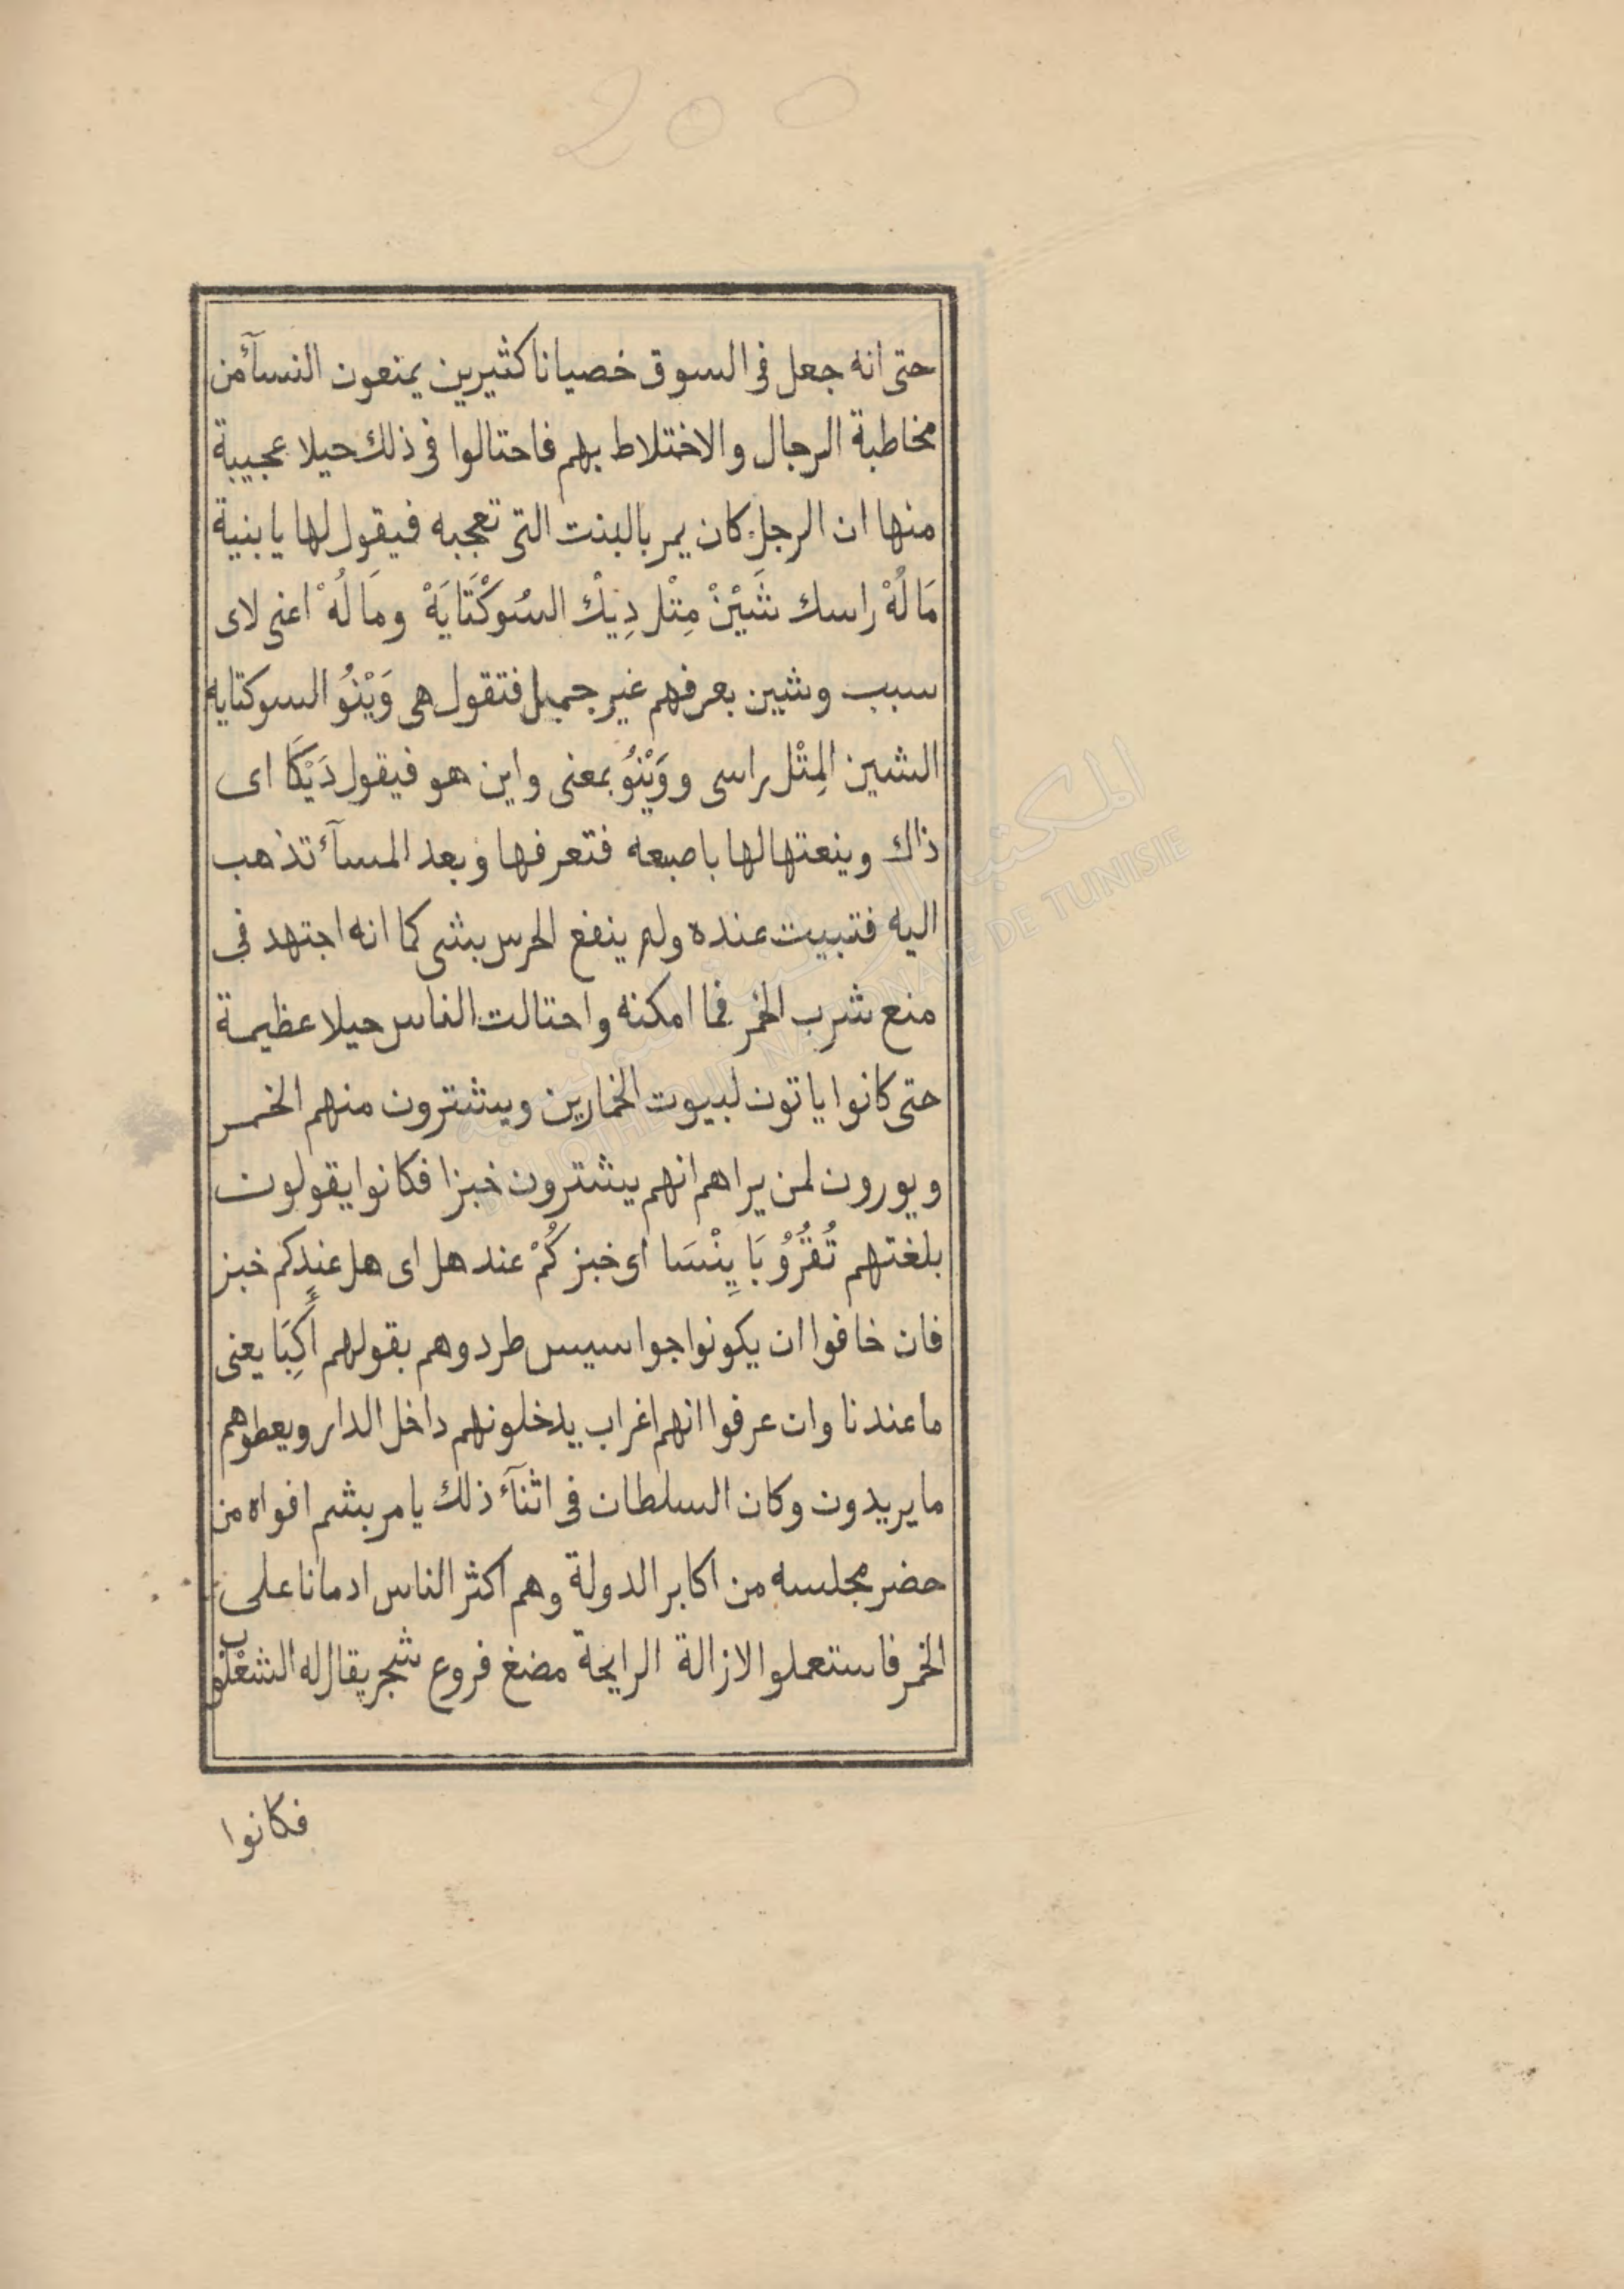 200
حتى انه جعل فى السوق خصيانا كثيرين يمنعون النسآء من
مخاطبة الرجال والاختلاط بهم فاحتالوا فى ذلك حيلا عجيبة
منها ان الرجل كان يمر بالبنت التى تعجبه فيقول لها يا بنية
مَا لُهْ راسك شَيْنْ مِتْل دِيْك السُوكْتَايَهْ ومَا لُهْ اعنى لاى
سبب وشين بعرفهم غير جميل فتقول هى وَيْنُو السوكتايه
الشين المِتْل راسى ووَيْنُو بمعنى واين هو فيقول دَيْكَا اى
ذاك وينعتها لها باصبعه فتعرفها وبعد المسآء تذهب
اليه فتبيت عنده ولم ينفع الحرس بشى كما انه اجتهد فى
منع شرب الخمر فما امكنه واحتالت الناس حيلا عظيمة
حتى كانوا ياتون لبيوت الخمارين ويشترون منهم الخمر
ويورون لمن يراهم انهم يشترون خبزا فكانوا يقولون
بلغتهم تُقُرُو بَا يِنْسَا اى خبز كُمْ عند هل اى هل عندكم خبز
فان خافوا ان يكونوا جواسيس طردوهم بقولهم أَكِبَا يعنى
ما عندنا وان عرفوا انهم اغراب يدخلونهم داخل الدار ويعطوهم
ما يريدون وكان السلطان فى اثنآء ذلك يامر بشم افواه من
حضر مجلسه من اكابر الدولة وهم اكثر الناس ادمانا على
الخمر فاستعملوا لازالة الرايحة مضغ فروع شجر يقال له الشعلوب
فكانوا
المكتبة الوطنية التونسية
BIBLIOTHEQUE NATIONALE DE TUNISIE